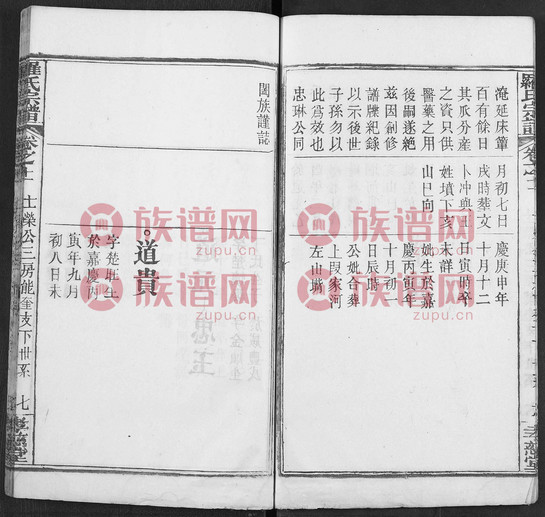 淹延床簟
百有餘日
其瓜分産
之資只供
醫藥之用
後嗣遂絶
茲因創修
譜牒紀錄
以示後世
子孫勿以
此爲效也
忠琳公同
月初七日
戌時葬文
卜冲與王
姓墳下亥
山巳向
慶庚申年
十月十二
日寅時卒
未詳
妣生於嘉
慶丙寅年
十月初一
日辰時
公妣合葬
上叚家河
左山嘴
闔族謹誌
道貴
字楚旺生
於嘉慶丙
寅年九月
初八日未
羅氏宗譜
卷之十
士爍公三房能奎支下世系
七
族谱网
zupu.cn
典